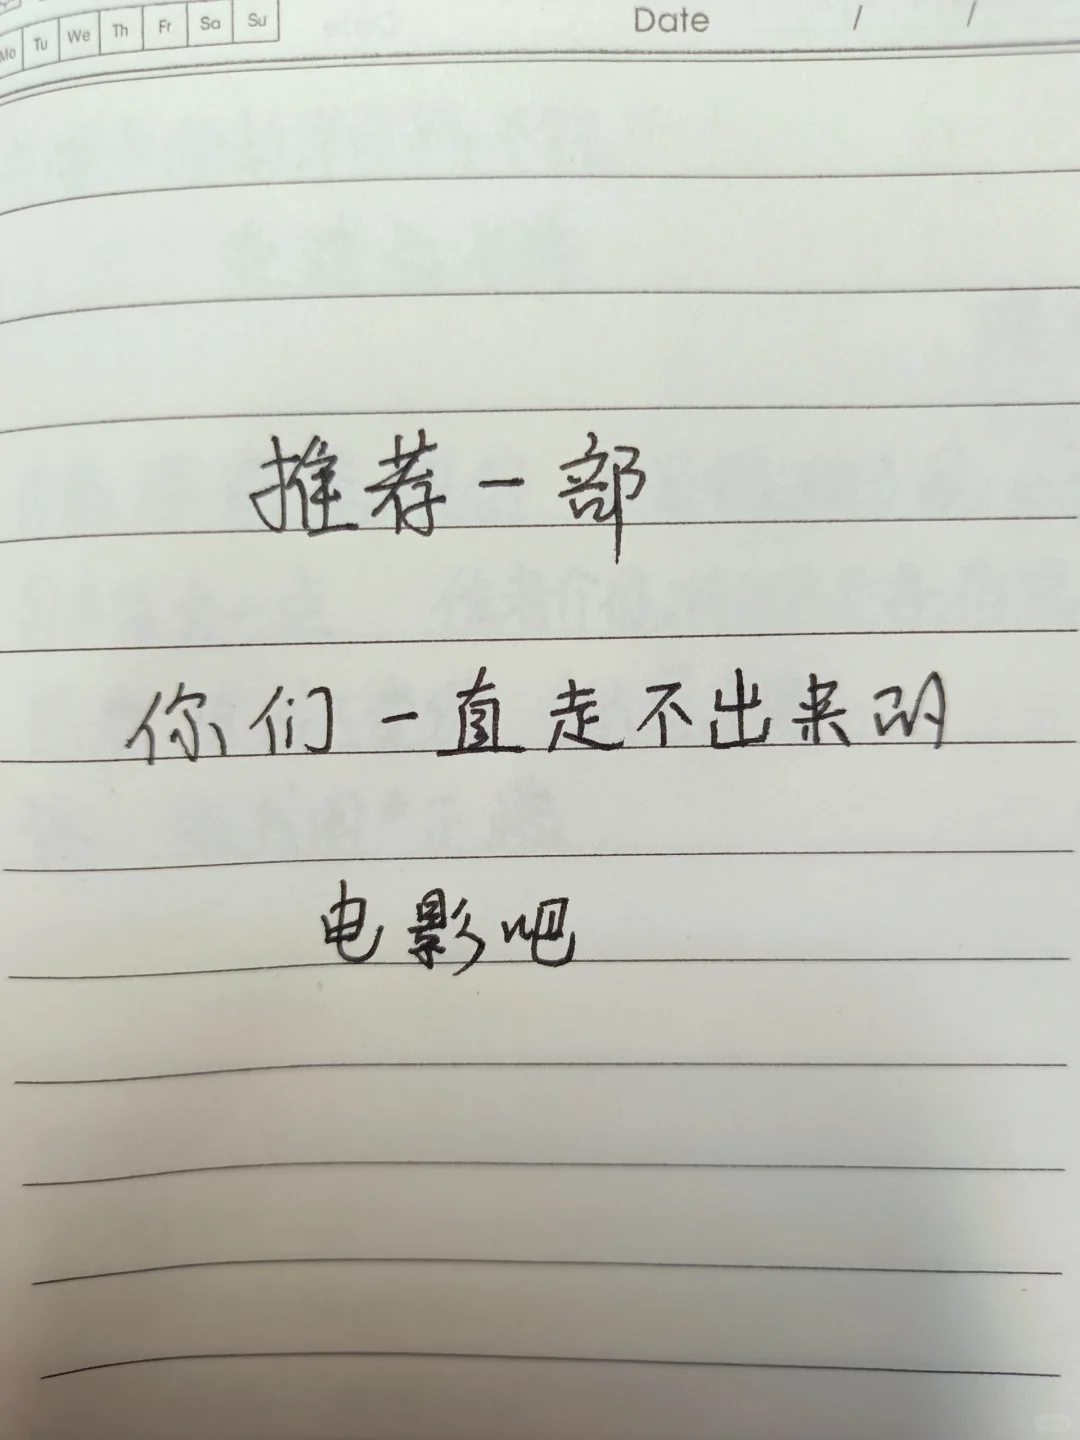 Mo Tu We Th Fr Sa Su
Date / /
推荐一部
你们一直走不出来的
电影吧